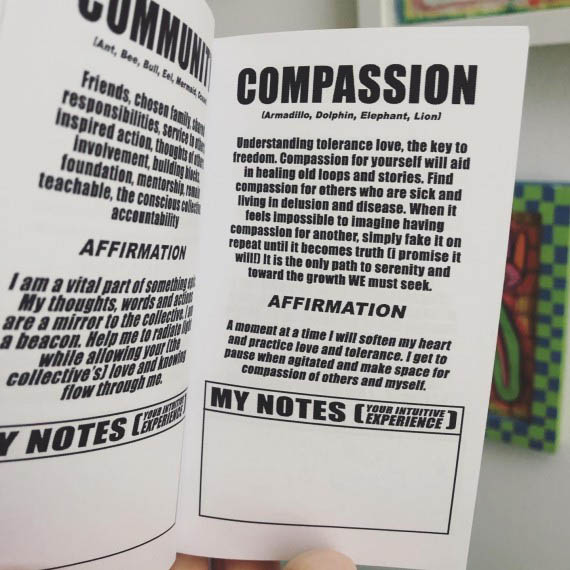 COMMUNIT
(Ant, Bee, Bull, Eel, Mermaid,
Friends, chosen family, shared
responsibilities, service to others
inspired action, thoughts of others
Involvement, building blocks
foundation, mentorship,
teachable, the conscious collective
accountability
AFFIRMATION
I am a vital part of something
My thoughts, words and actions
are a mirror to the collective. I am
a beacon. Help me to radiate light
while allowing your (the
collective's) love and knowing
flow through me.
Y NOTES (YOUR INTUITIVE
EXPERIENCE
COMPASSION
(Armadillo, Dolphin, Elephant, Lion)
Understanding tolerance love, the key to
freedom. Compassion for yourself will aid
in healing old loops and stories. Find
compassion for others who are sick and
living in delusion and disease. When it
feels impossible to imagine having
compassion for another, simply fake it on
repeat until it becomes truth (i promise it
will!) It is the only path to serenity and
toward the growth WE must seek.
AFFIRMATION
A moment at a time I will soften my heart
and practice love and tolerance. I get to
pause when agitated and make space for
compassion of others and myself.
MY NOTES (YOUR INTUITIVE
EXPERIENCE)